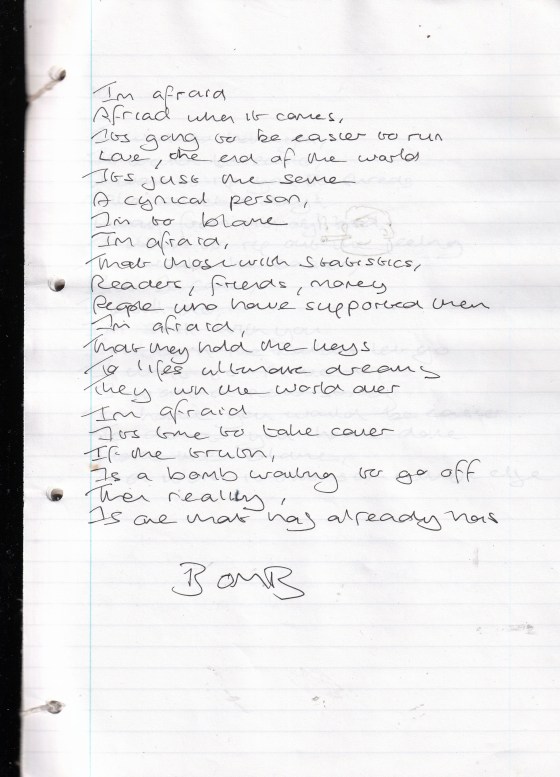 Im afraid
Afriad when it comes,
Its gong to be easier to run
Love, the end of the world
Its just the same
A cynical person,
Im to blame
Im afraid,
That those with statistics,
Readers, friends, money
People who have supported them
Im afraid,
That they hold the keys
To lifes ultimate dreams
They run the world over
Im afraid
Its time to take cover
If the truth,
Is a bomb waiting to go off
Then reality,
Is one that has already has
BOMB